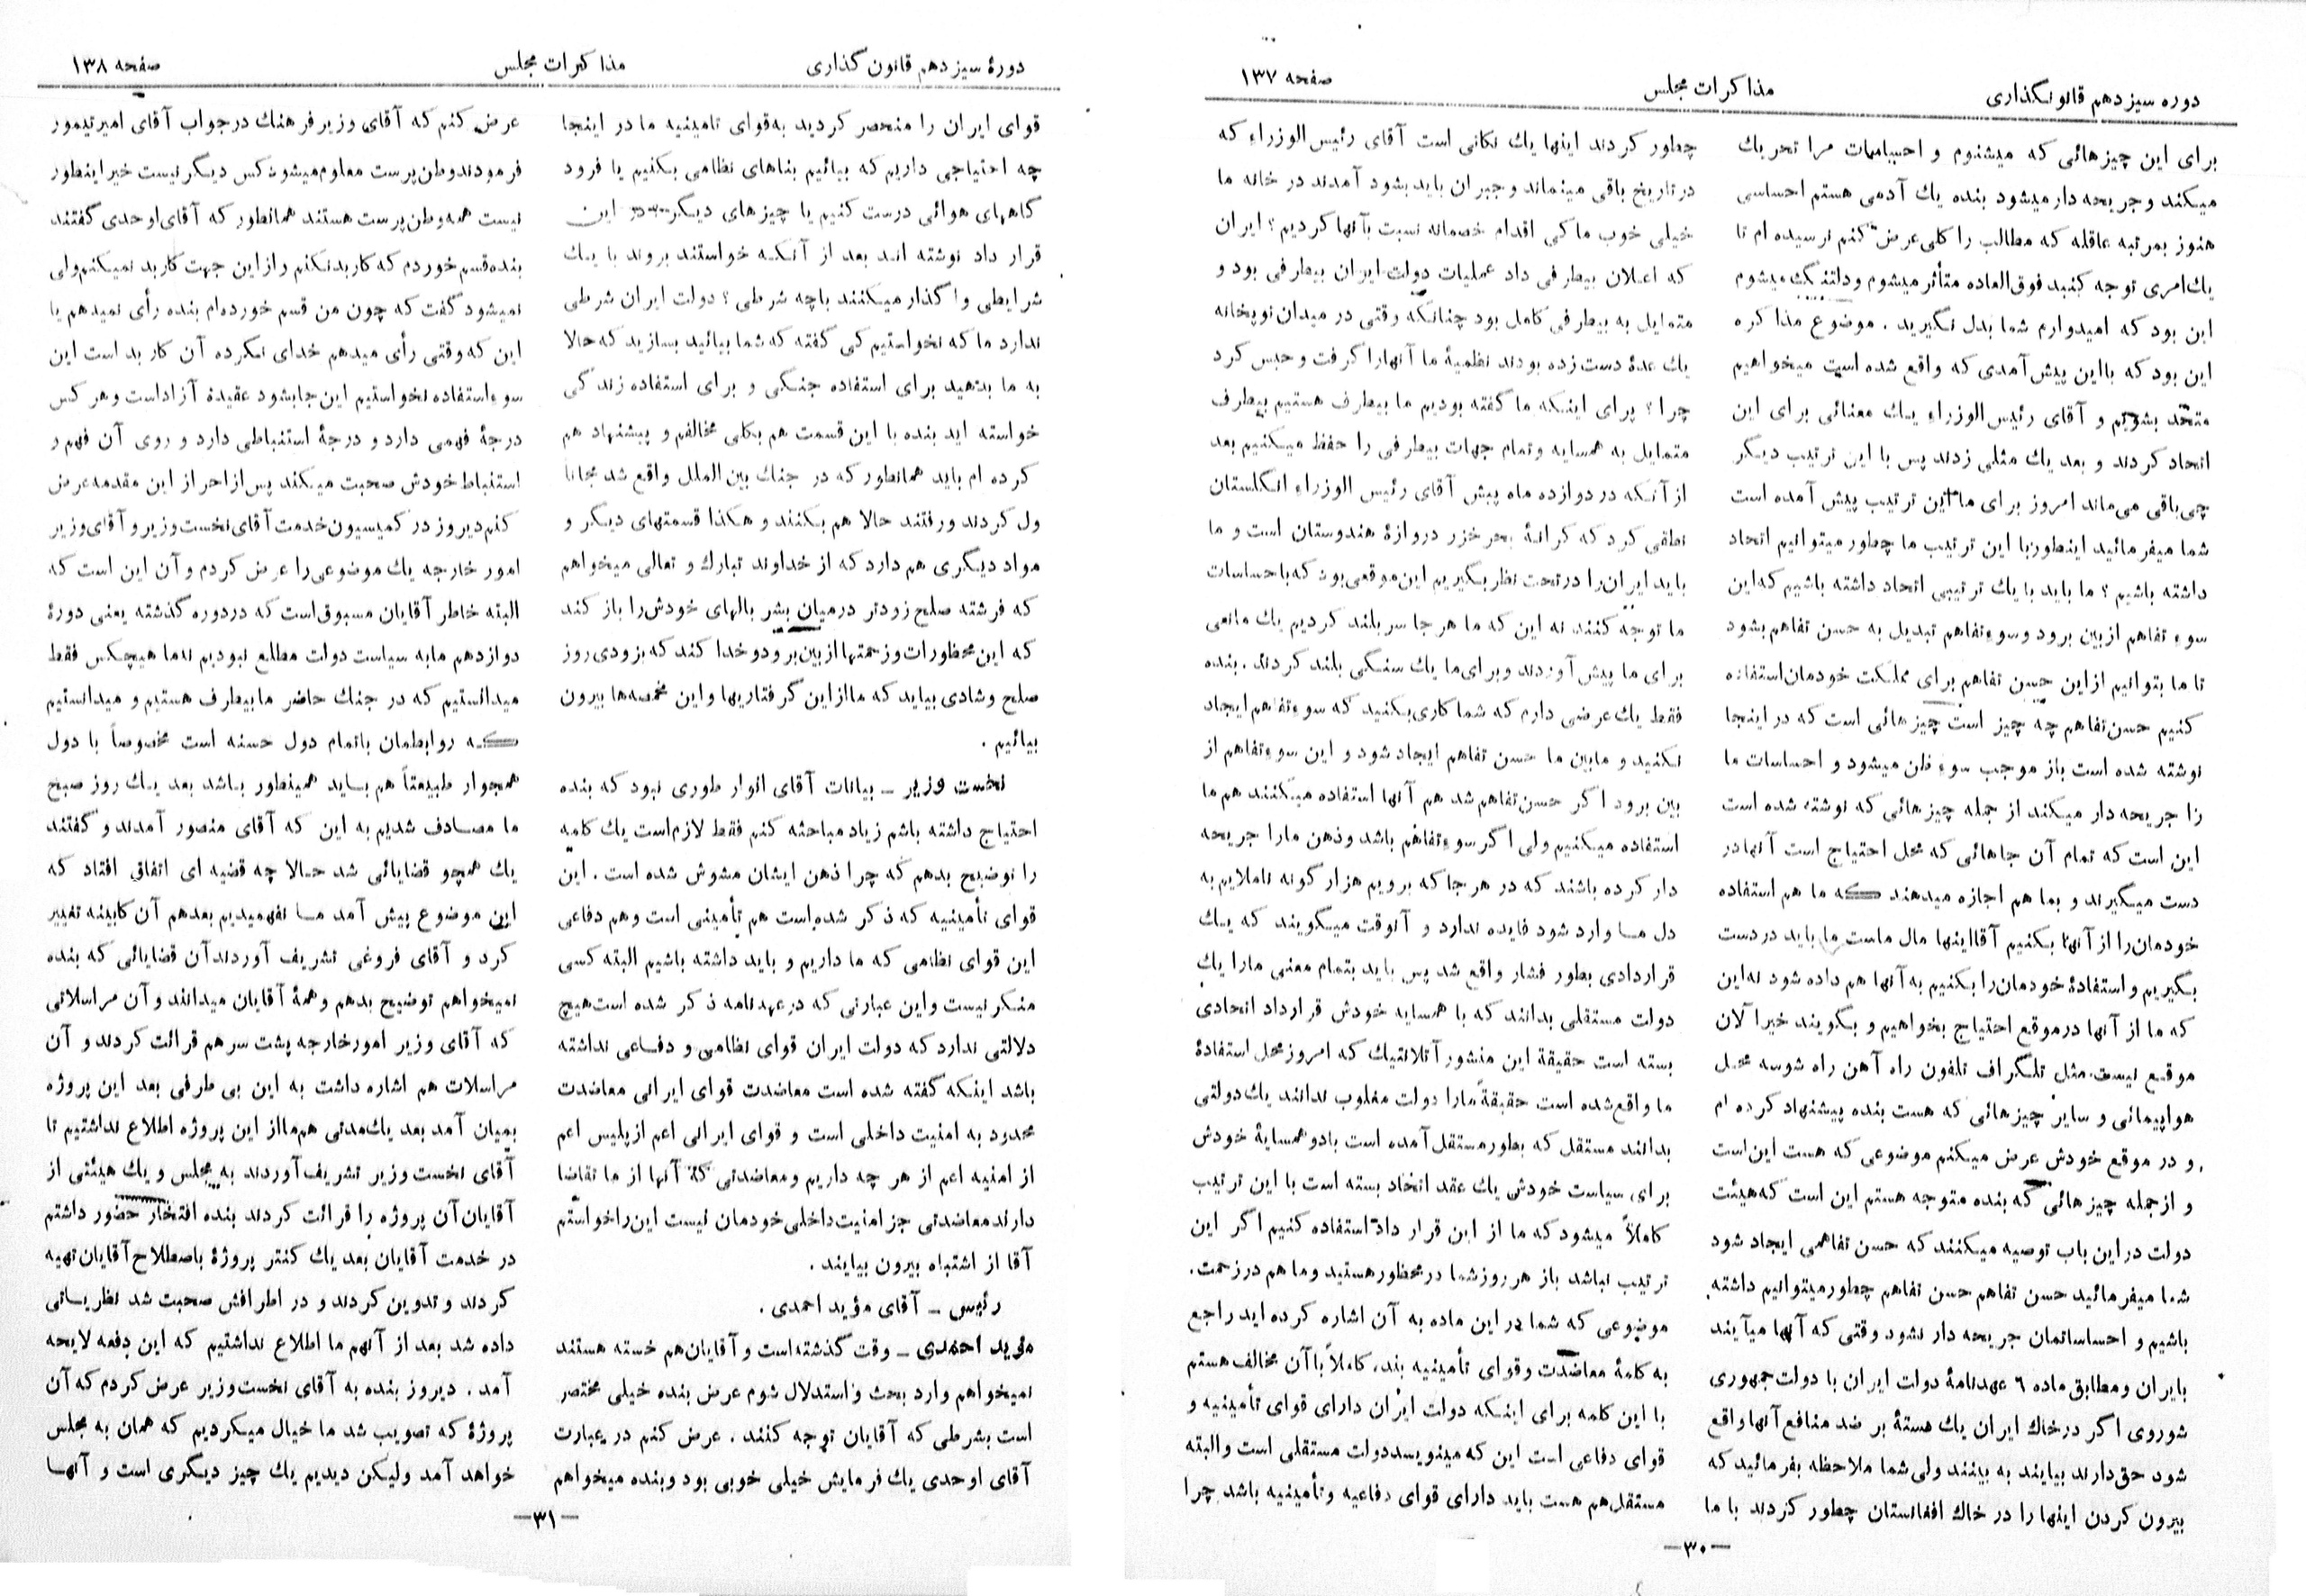 دوره سیزدهم قانونگذاری
مذاکرات مجلس
صفحه ۱۳۷
برای این چیزهائی که میشنوم و احساسات مرا تحریك
میکند و جریحه دار میشود بنده یك آدمی هستم احساسی
هنوز بمرتبه عاقله که مطالب را کلی عرض کنم نرسیده ام تا
یك امری توجه کنید فوق‌العاده متأثر میشوم و دلتنگ میشوم
این بود که امیدوارم شما بدل نگیرید . موضوع مذاکره
این بود که بااین پیش‌آمدی که واقع شده است میخواهیم
متحد بشویم و آقای رئیس‌الوزراء یك معنائی برای این
اتحاد کردند و بعد یك مثلی زدند پس با این ترتیب دیگر
چی‌باقی می‌ماند امروز برای ما این ترتیب پیش آمده است
شما میفرمائید اینطور با این ترتیب ما چطور میتوانیم اتحاد
داشته باشیم ؟ ما باید با یك ترتیبی اتحاد داشته باشیم که‌این
سوء تفاهم ازبین برود و سوءتفاهم تبدیل به حسن تفاهم بشود
تا ما بتوانیم ازاین حسن تفاهم برای مملکت خودمان استفاده
کنیم حسن‌تفاهم چه چیز است چیزهائی است که دراینجا
نوشته شده است باز موجب سوءظن میشود و احساسات ما
را جریحه دار میکند از جمله چیزهائی که نوشته شده است
این است که تمام آن جاهائی که محل احتیاج است آنها در
دست میگیرند و بما هم اجازه میدهند که ما هم استفاده
خودمان‌را از آنها بکنیم آقا اینها مال ماست ما باید دردست
بگیریم و استفادهٔ خودمان‌را بکنیم به آنها هم داده شود نه‌این
که ما از آنها درموقع احتیاج بخواهیم و بگویند خیر الان
موقع نیست مثل تلگراف تلفون راه آهن راه شوسه محل
هواپیمائی و سایر چیزهائی که هست بنده پیشنهاد کرده ام
و در موقع خودش عرض میکنم موضوعی که هست این‌است
و ازجمله چیزهائی که بنده متوجه هستم این است که‌هیئت
دولت دراین باب توصیه میکنند که حسن تفاهمی ایجاد شود
شما میفرمائید حسن تفاهم حسن تفاهم چطور میتوانیم داشته
باشیم و احساساتمان جریحه دار نشود وقتی که آنها میآیند
بایران و مطابق ماده ۶ عهدنامهٔ دولت ایران با دولت جمهوری
شوروی اگر درخاك ایران یك هستهٔ بر ضد منافع آنها واقع
شود حق‌دارند بیایند به بینند ولی شما ملاحظه بفرمائید که
بیرون کردن اینها را در خاك افغانستان چطور کردند با ما
چطور کردند اینها یك نکاتی است آقای رئیس‌الوزراء که
درتاریخ باقی میماند و جبران باید بشود آمدند در خانه ما
خیلی خوب ما کی اقدام خصمانه نسبت بآنها کردیم ؟ ایران
که اعلان بیطرفی داد عملیات دولت ایران بیطرفی بود و
متمایل به بیطرفی کامل بود چنانکه وقتی در میدان توپخانه
یك عدهٔ دست زده بودند نظمیهٔ ما آنهارا گرفت و حبس کرد
چرا ؟ برای اینکه ما گفته بودیم ما بیطرف هستیم بیطرف
متمایل به همسایه و تمام جهات بیطرفی را حفظ میکنیم بعد
از آنکه در دوازده ماه پیش آقای رئیس الوزراء انگلستان
نطقی کرد که کرانهٔ بحر خزر دروازهٔ هندوستان است و ما
باید ایران‌را درتحت نظر بگیریم این‌موقعی‌بود که‌باحساسات
ما توجه کنند نه این که ما هرجا سر بلند کردیم یك مانعی
برای ما پیش آوردند و برای‌ما یك سنگی بلند کردند . بنده
فقط یك عرضی دارم که شما کاری‌بکنید که سوءتفاهم ایجاد
نکنید و مابین ما حسن تفاهم ایجاد شود و این سوءتفاهم از
بین برود اگر حسن‌تفاهم شد هم آنها استفاده میکنند هم ما
استفاده میکنیم ولی اگر سوءتفاهم باشد وذهن مارا جریحه
دار کرده باشند که در هر جا که برویم هزار گونه ناملایم به
دل ما وارد شود فایده ندارد و آنوقت میگویند که یك
قراردادی بطور فشار واقع شد پس باید بتمام معنی مارا یك
دولت مستقلی بدانند که با همسایه خودش قرارداد اتحادی
بسته است حقیقة این منشور آتلانتیك که امروز محل استفادهٔ
ما واقع‌شده است حقیقةً مارا دولت مغلوب ندانند یك‌دولتی
بدانند مستقل که بطور مستقل آمده است بادو همسایهٔ خودش
برای سیاست خودش یك عقد اتحاد بسته است با این ترتیب
کاملاً میشود که ما از این قرار داد استفاده کنیم اگر این
ترتیب نباشد باز هرروز شما درمحظور هستید و ما هم درزحمت.
موضوعی که شما در این ماده به آن اشاره کرده اید راجع
به کلمهٔ معاضدت وقوای تأمینیه بنده کاملاً با آن مخالف هستم
با این کلمه برای اینکه دولت ایران دارای قوای تأمینیه و
قوای دفاعی است این که مینویسد دولت مستقلی است و البته
مستقل‌هم هست باید دارای قوای دفاعیه وتأمینیه باشد چرا
—۳۰—
دورهٔ سیزدهم قانون گذاری
مذاکرات مجلس
صفحه ۱۳۸
قوای ایران را منحصر کردید به‌قوای تامینیه ما در اینجا
چه احتیاجی داریم که بیائیم بناهای نظامی بکنیم یا فرود
گاههای هوائی درست کنیم یا چیزهای دیگر در این
قرار داد نوشته اند بعد از آنکه خواستند بروند با یك
شرایطی واگذار میکنند باچه شرطی ؟ دولت ایران شرطی
ندارد ما که نخواستیم کی گفته که شما بیائید بسازید که حالا
به ما بدهید برای استفاده جنگی و برای استفاده زندگی
خواسته اید بنده با این قسمت هم بکلی مخالفم و پیشنهاد هم
کرده ام باید همانطور که در جنك بین‌الملل واقع شد مجانا
ول کردند ورفتند حالا هم بکنند و هکذا قسمتهای دیگر و
مواد دیگری هم دارد که از خداوند تبارك و تعالی میخواهم
که فرشته صلح زودتر درمیان بشر بالهای خودش‌را باز کند
که این محظورات وزحمتها ازبین برود و خدا کند که بزودی روز
صلح وشادی بیاید که ما ازاین گرفتاریها واین مخمصه‌ها بیرون
بیائیم .
نخست وزیر ــ بیانات آقای انوار طوری نبود که بنده
احتیاج داشته باشم زیاد مباحثه کنم فقط لازم‌است یك کلمه
را توضیح بدهم که چرا ذهن ایشان مشوش شده است . این
قوای تأمینیه که ذکر شده‌است هم تأمینی است وهم دفاعی
این قوای نظامی که ما داریم و باید داشته باشیم البته کسی
منکر نیست واین عبارتی که درعهدنامه ذکر شده است‌هیچ
دلالتی ندارد که دولت ایران قوای نظامی و دفاعی نداشته
باشد اینکه گفته شده است معاضدت قوای ایرانی معاضدت
محدود به امنیت داخلی است و قوای ایرانی اعم ازپلیس اعم
از امنیه اعم از هر چه داریم ومعاضدتی که آنها از ما تقاضا
دارند معاضدتی جز امنیت داخلی خودمان نیست این‌را خواستم
آقا از اشتباه بیرون بیایند .
رئیس ــ آقای مؤید احمدی .
مؤید احمدی ــ وقت گذشته‌است و آقایان‌هم خسته هستند
نمیخواهم وارد بحث و استدلال شوم عرض بنده خیلی مختصر
است بشرطی که آقایان توجه کنند . عرض کنم در عبارت
آقای اوحدی یك فرمایش خیلی خوبی بود و بنده میخواهم
عرض کنم که آقای وزیر فرهنك درجواب آقای امیرتیمور
فرمودند وطن‌پرست معلوم میشود کس دیگر نیست خیر اینطور
نیست همه وطن‌پرست هستند همانطور که آقای اوحدی گفتند
بنده قسم خوردم که کار بد نکنم و از این جهت کار بد نمیکنم ولی
نمیشود گفت که چون من قسم خورده‌ام بنده رأی نمیدهم یا
این که وقتی رأی میدهم خدای نکرده آن کار بد است این
سوءاستفاده نخواستیم این جا بشود عقیدهٔ آزاد است و هر کس
درجهٔ فهمی دارد و درجهٔ استنباطی دارد و روی آن فهم و
استنباط خودش صحبت میکند پس‌از احراز این مقدمه عرض
کنم دیروز در کمیسیون خدمت آقای نخست وزیر و آقای وزیر
امور خارجه یك موضوعی را عرض کردم و آن این است که
البته خاطر آقایان مسبوق است که در دوره گذشته یعنی دورهٔ
دوازدهم مابه سیاست دولت مطلع نبودیم نه‌ما هیچکس فقط
میدانستیم که در جنك حاضر ما بیطرف هستیم و میدانستیم
که روابطمان باتمام دول حسنه است مخصوصاً با دول
همجوار طبیعتاً هم باید همینطور باشد بعد یك روز صبح
ما مصادف شدیم به این که آقای منصور آمدند و گفتند
یك همچو قضایائی شد حالا چه قضیه ای اتفاق افتاد که
این موضوع پیش آمد ما نفهمیدیم بعدهم آن کابینه تغییر
کرد و آقای فروغی تشریف آوردند آن قضایائی که بنده
نمیخواهم توضیح بدهم و همهٔ آقایان میدانند و آن مراسلاتی
که آقای وزیر امور خارجه پشت سرهم قرائت کردند و آن
مراسلات هم اشاره داشت به این بی طرفی بعد این پروژه
بمیان آمد بعد یك‌مدتی هم‌ما از این پروژه اطلاع نداشتیم تا
آقای نخست وزیر تشریف آوردند به مجلس و یك هیئتی از
آقایان آن پروژه را قرائت کردند بنده افتخار حضور داشتم
در خدمت آقایان بعد یك کنتر پروژهٔ باصطلاح آقایان تهیه
کردند و تدوین کردند و در اطرافش صحبت شد نظریاتی
داده شد بعد از آنهم ما اطلاع نداشتیم که این دفعه لایحه
آمد . دیروز بنده به آقای نخست وزیر عرض کردم که آن
پروژهٔ که تصویب شد ما خیال میکردیم که همان به مجلس
خواهد آمد ولیکن دیدیم یك چیز دیگری است و آنها
—۳۱—